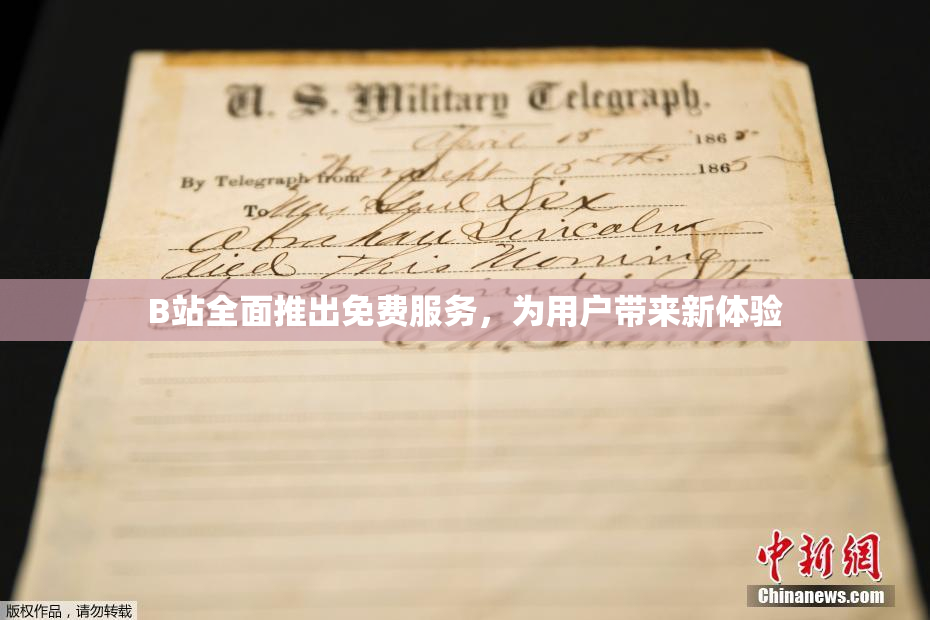 U. S. Military Telegraph.
April 15 1865
By Telegraph from War Dept 15th 1865
To Maj Genl Dix
Abraham Lincoln
died This Morning
at 22 minutes after
B站全面推出免费服务，为用户带来新体验
E. M. Stanton
中新网
Chinanews.com
版权作品，请勿转载